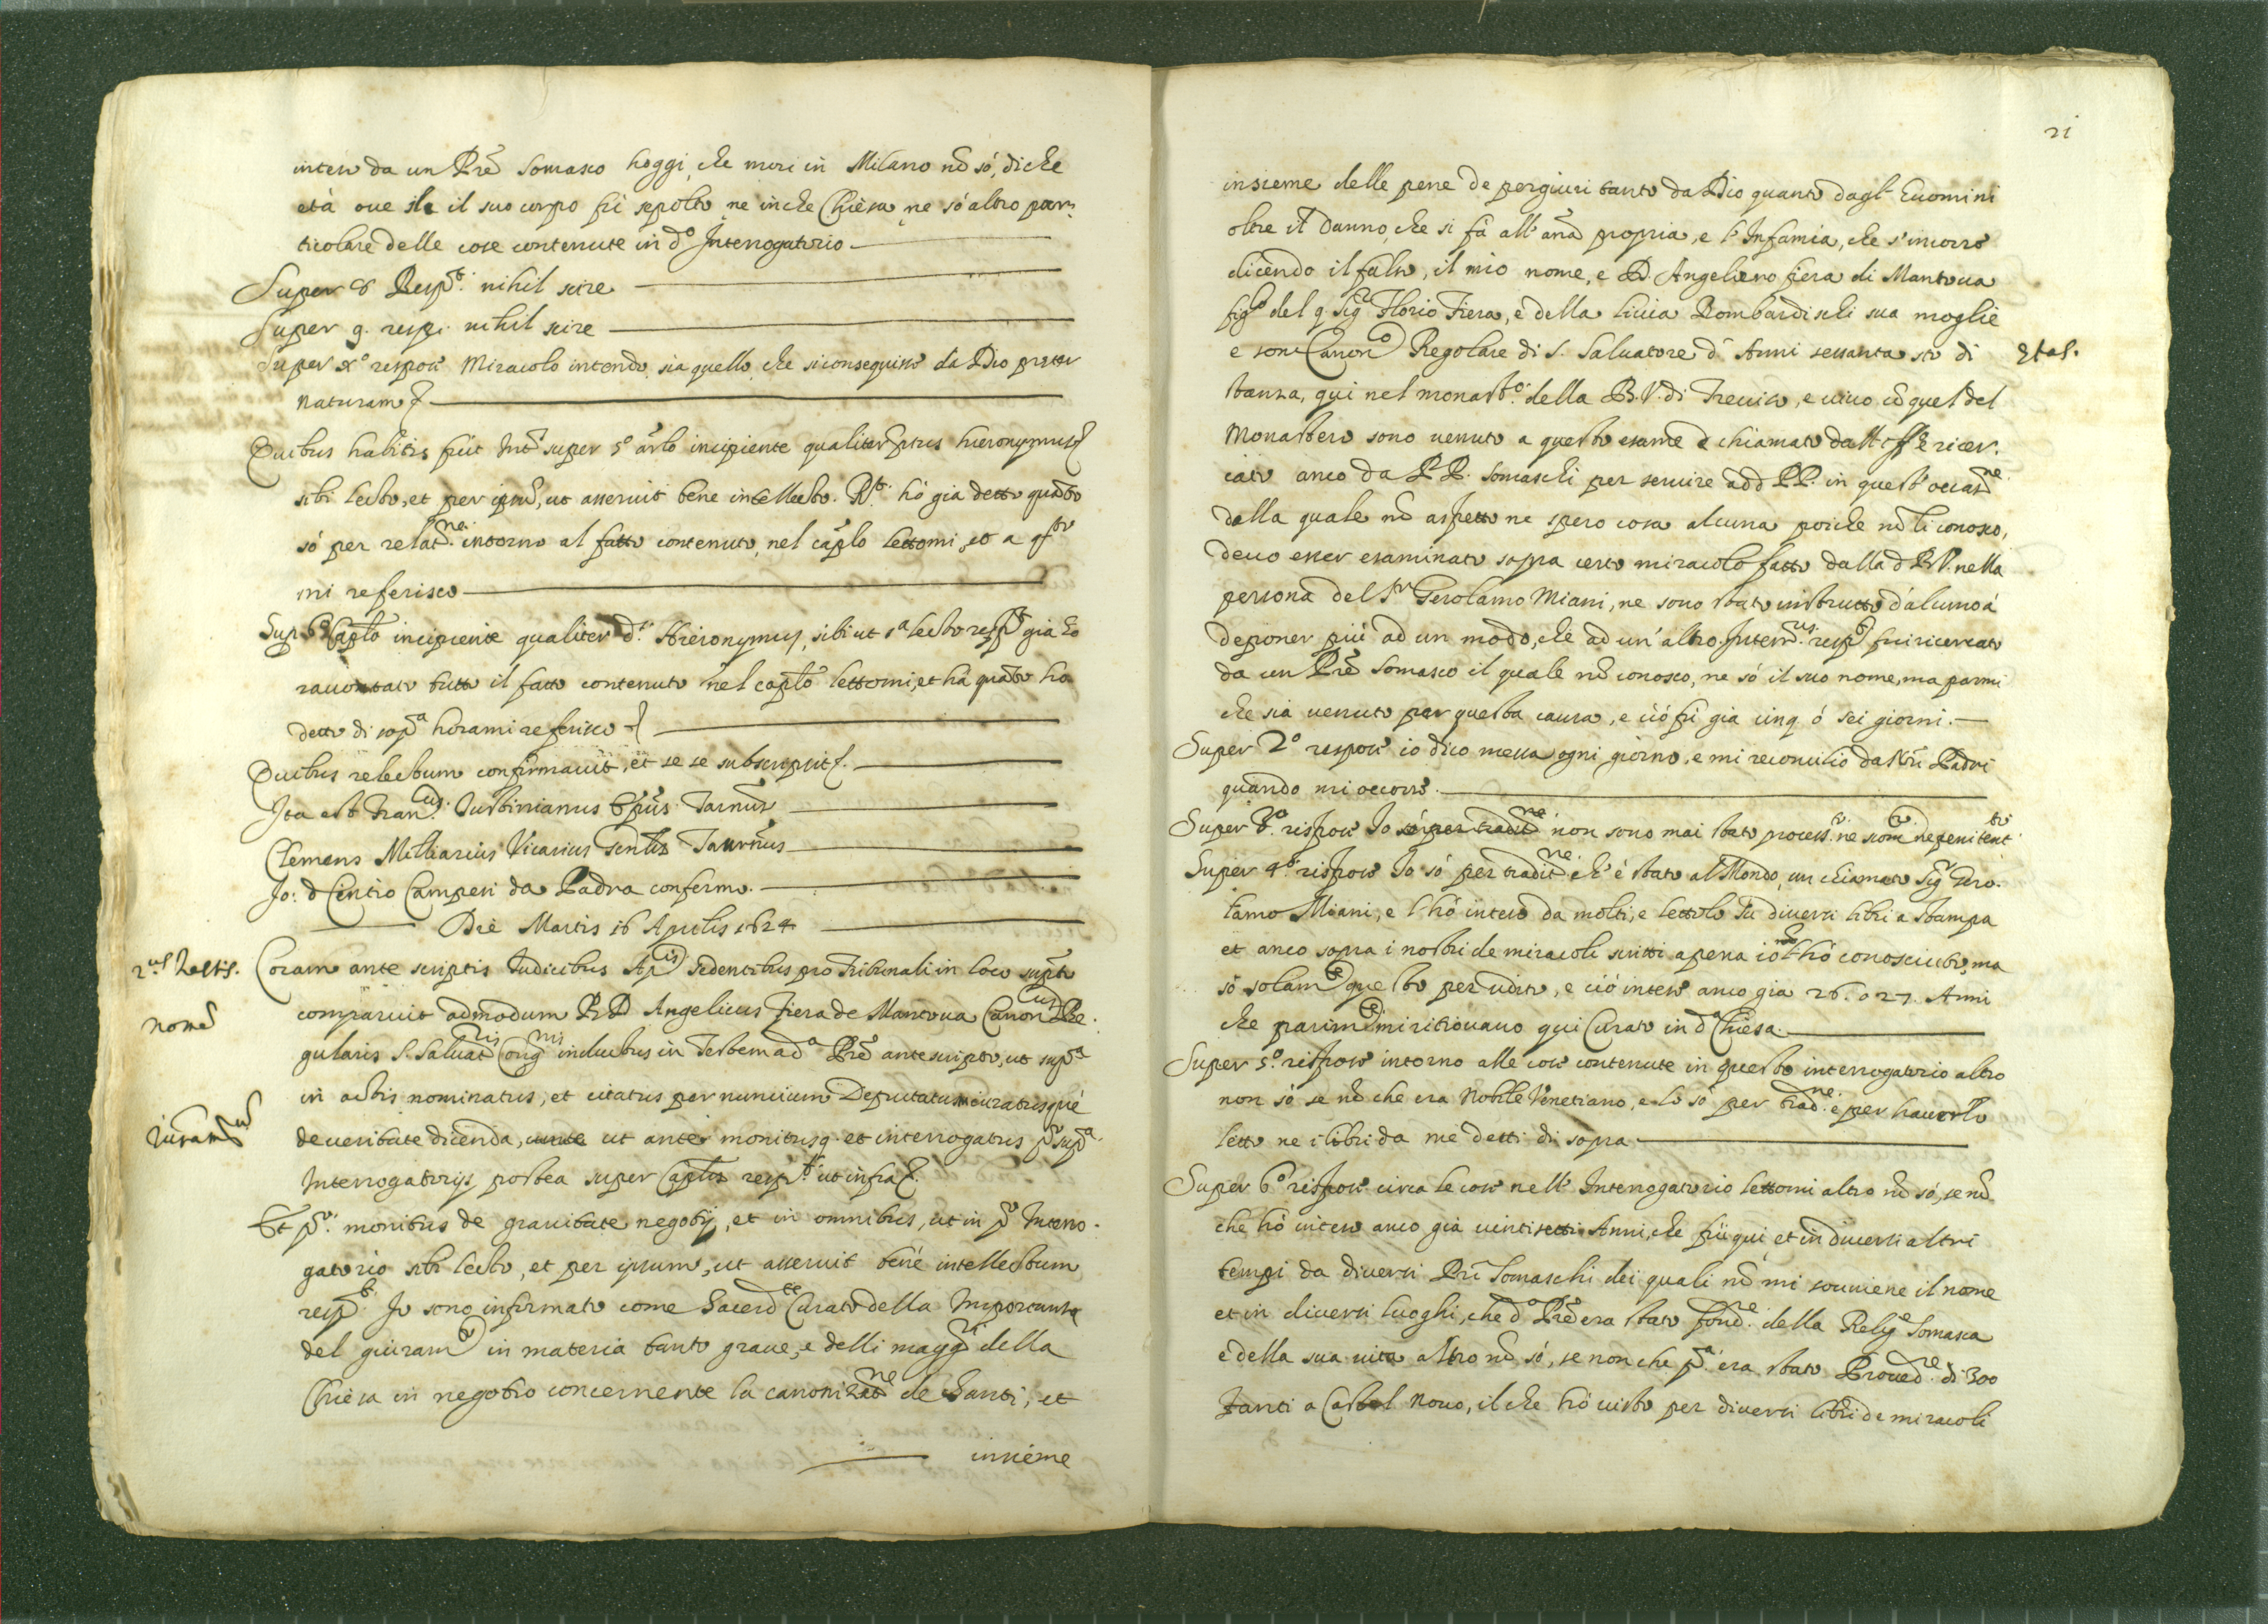 inteso da un Pre Somasco hoggi, che morì in Milano nõ sò, di che
età oue il suo corpo fù sepolto, ne in che Chiesa, ne sò altro par:
ticolare delle cose contenute in dº Interrogatorio
Super 8 Respt. nihil scire
Super 9. resp. nihil scire
Super xº respose Miracolo intendo, sia quello, che si conseguisce da Dio preter
naturam
Quibus habitis fuit Int. super 5º arlo incipiente qualiter Hieronymus
sibi lecto, et per ipsũ, ut asseruit bene intellecto. Rt. hò gia detto quãto
sò per relatne. intorno al fatto contenuto, nel caplo lettomi, et a qsto
mi referisco
Sup 6º Caplo incipiente qualiter ds. Hieronymus, sibi ut sª lecto respt già ho
racontato tutto il fatto contenuto nel caplo lettomi, et hà quãto ho
detto di sopª hora mi referisco
Quibus relectum confirmauit, et se se subscripsit.
Ita est Francus. Iustinianus Epus. Taruus
Clemens Milliarius Vicarius Genlis Taruus
Jo: d Cintio Camperi da Padoa confermo.
Die Martis 16 Aprilis 1624
2us Testis.
Coram ante scriptis Iudicibus Aplis sedentibus pro Tribunali in loco suprto
nomẽ
comparuit admodum R D Angelicus Fiera de Mantoua Canoncus Re.
gularis S. Saluatris Congnis inductus in Testem a dº Pre antescripto, ut supª
in actis nominatus, et citatus per nuncium Deputatum iuratusque
Iuramtum
de veritate dicenda, ut ante monitusq. et interrogatus po supª.
Interrogatorijs postea super Caplis respt. ut infra.
Et po. monitus de grauitate negotij, et in omnibus, ut in po Interro.
gatorio sibi lecto, et per ipsum, ut asseruit benè intellectum
respt. Io sono informato come Sacerdte Curato della Importanza
del giuramto in materia tanto graue, e delli maggri della
Chiesa in negotio concernente la canonizatne de Santi, et
insieme
21
insieme delle pene de pergiuri tanto da Dio quanto dagl' Huomini
oltre il danno, che si fà all' anã propria, e l' Infamia, che s' incorre
dicendo il falso, il mio nome, e D. Angelico fiera di Mantoua
figlo del q Sigr Florio Fiera, e della Liuia Bombardischi sua moglie
e son Canonco Regolare di S. Saluatore d' Anni sessanta sto di
Etas.
stanza, qui nel monastº. della B. V. di Treuiso, e uiuo cõ quel del
Monastero sono uenuto a questo esame chiamato dall' e ricer.
cato anco da PP. Somaschi per seruire a dd PP. in quest' occasne.
dalla quale nõ aspetto ne spero cosa alcuna poiche nõ li conosco,
deuo esser esaminato sopra certo miracolo fatto dalla d B V. nella
persona del Sr Gerolamo Miani, ne sono stato instrutto d'alcuno à
deponer più ad un modo, che ad un' altro. Interrus. respt fui ricercato
da un Pre Somasco il quale nõ conosco, ne sò il suo nome, ma parmi
che sia uenuto per questa causa, e ciò fù già cinq. ò sei giorni.
Super 2º respose io dico messa ogni giorno, e mi reconcilio da Nri Padri
quando mi occorre.
Super 3º. rispose Io sò per traditne non sono mai stato process. ne scomcto ne penitentto
Super 4º. rispose Io sò per traditne. ch' è stato al Mondo, un chiamato Sigr Gero.
lamo Miani, e l' hò inteso da molti, e lettolo in diuersi libri a stampa
et anco sopra i nostri de miracoli scritti a pena io nõ l' hò conosciuto, ma
sò solamte questo per udito, e ciò intesi anco gia 26. o 27. Anni
che parimte mi ritrouauo qui Curato in dª Chiesa.
Super 5º. rispose intorno alle cose contenute in questo interrogatorio altro
non sò se nõ che era Nobile Venetiano, e lo sò per tradne. e per hauerlo
letto ne i libri da me detti di sopra
Super 6º rispose circa le cose nell' Interrogatorio lettomi altro nõ sò, se nõ
che hò inteso anco già uintisetti Anni, che fui qui, et in diuersi altri
tempi da diuersi Pri Somaschi dei quali nõ mi souuiene il nome
et in diuersi luoghi, che dº Pre era stato fondre. della Relige Somasca
e della sua uita altro nõ sò, se non che pª era stato Prouedre. di 300
Fanti a Castel Nouo, il che hò uisto per diuersi libri de miracoli